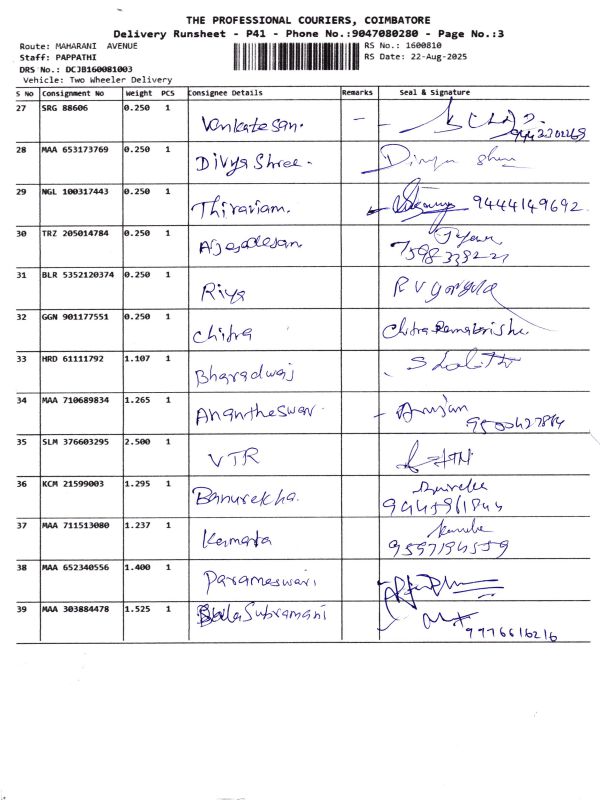 THE PROFESSIONAL COURIERS, COIMBATORE
Delivery Runsheet - P41 - Phone No.:9047080280 - Page No.:3
Route: MAHARANI AVENUE
RS No.: 1600810
Staff: PAPPATHI
RS Date: 22-Aug-2025
DRS No.: DCJB160081003
Vehicle: Two Wheeler Delivery
S No Consignment No Weight PCS Consignee Details Remarks Seal & Signature
27 SRG 88606 0.250 1
Venkatesan. -
28 MAA 653173769 0.250 1
Divya Shree.
29 NGL 100317443 0.250 1
Thiraviam. 9444149692
30 TRZ 205014784 0.250 1
31 BLR 5352120374 0.250 1
Riya
32 GGN 901177551 0.250 1
Chitra Chitra Ramakrishn
33 HRD 61111792 1.107 1
Bharadwaj
34 MAA 710689834 1.265 1
Anantheswar.
35 SLM 376603295 2.500 1
VTR
36 KCM 21599003 1.295 1
Banurekha.
37 MAA 711513080 1.237 1
Kamala
9597194559
38 MAA 652340556 1.400 1
Parameswari
39 MAA 303884478 1.525 1
BalaSubramani
9976616216